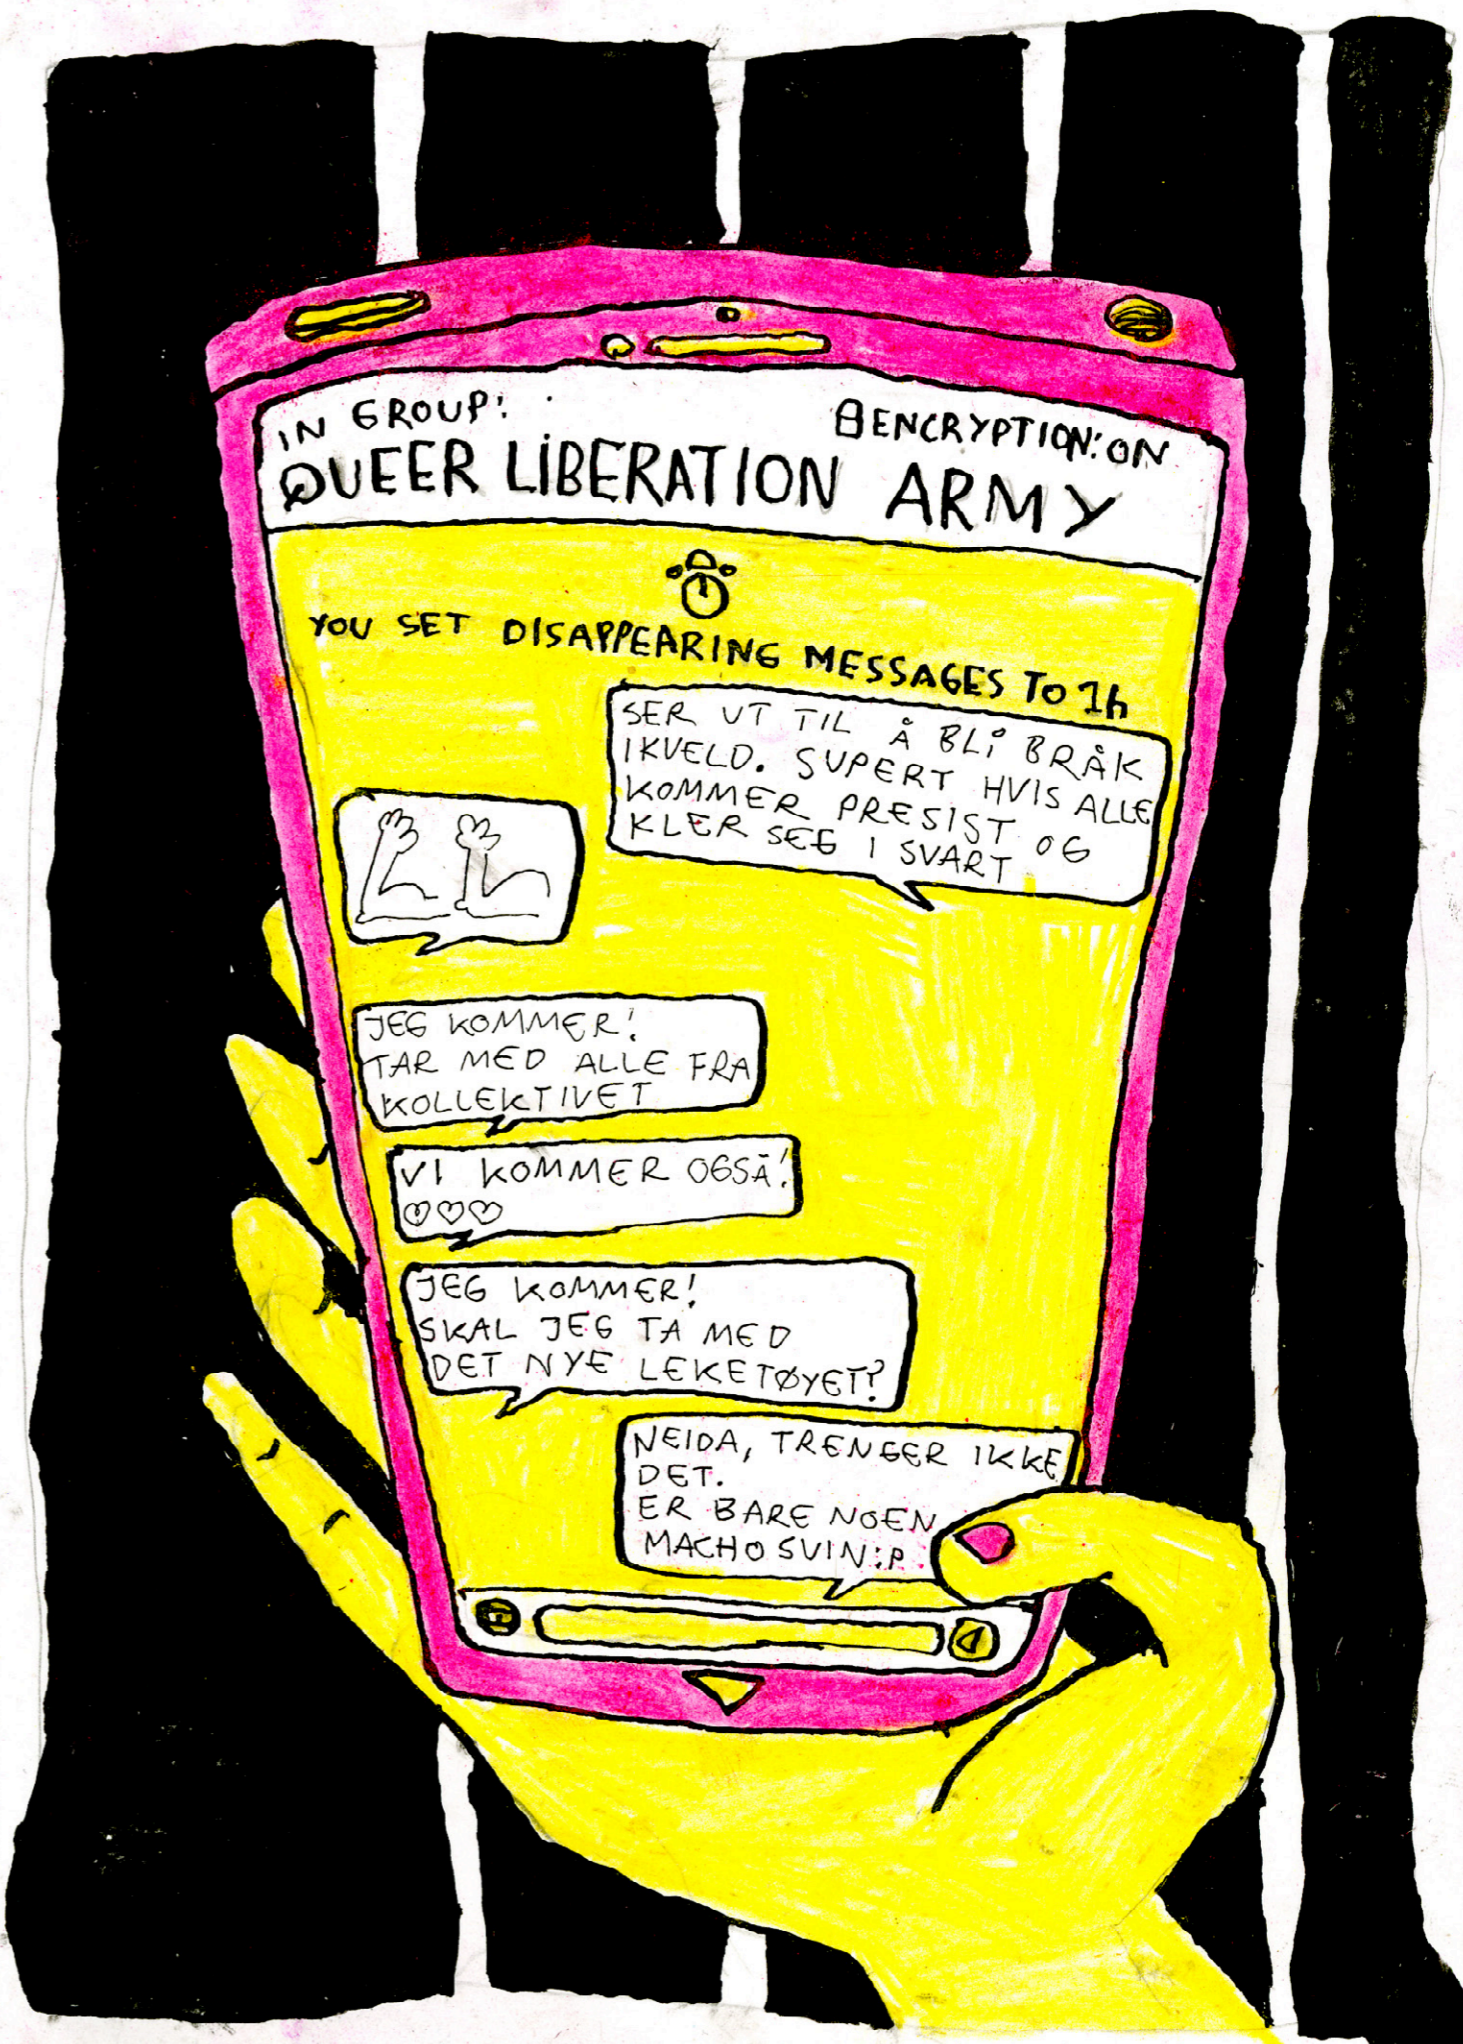 IN GROUP:
ENCRYPTION: ON
QUEER LIBERATION ARMY
YOU SET DISAPPEARING MESSAGES TO 1h
SER UT TIL Å BLI BRÅK
IKVELD. SUPERT HVIS ALLE
KOMMER PRESIST OG
KLER SEG I SVART
JEG KOMMER!
TAR MED ALLE FRA
KOLLEKTIVET
VI KOMMER OGSÅ!
♡♡♡
JEG KOMMER!
SKAL JEG TA MED
DET NYE LEKETØYET?
NEIDA, TRENGER IKKE
DET.
ER BARE NOEN
MACHO SVIN :P